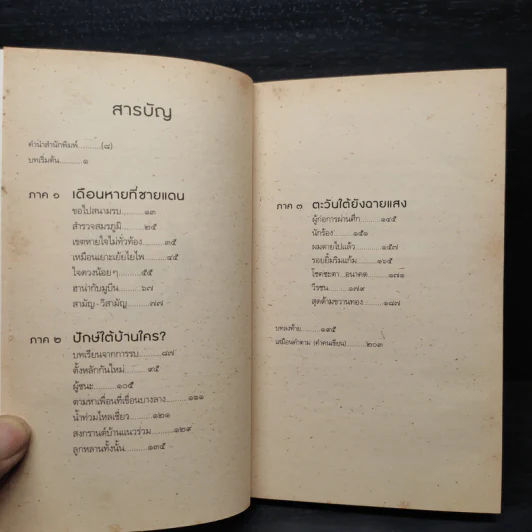 สารบัญ
คำนำสำนักพิมพ์..........(๘)
บทเริ่มต้น..........๑
ภาค ๑ เดือนหายที่ชายแดน
ขอไปสนามรบ..........๑๓
สำรวจสมรภูมิ..........๒๕
เขตหายใจไม่ทั่วท้อง..........๓๕
เหมือนเยอะเย้ยไยไพ..........๔๕
ใจดวงน้อยๆ..........๕๕
ฮาน่ากับมูบีน..........๖๗
สามัญ-วิสามัญ..........๗๗
ภาค ๒ ปักษ์ใต้บ้านใคร?
บทเรียนจากการรบ..........๘๗
ตั้งหลักกันใหม่..........๙๕
ผู้ชนะ..........๑๐๕
ตามหาเพื่อนที่เขื่อนบางลาง..........๑๑๑
น้ำท่วมไหลเชี่ยว..........๑๒๑
สงกรานต์บ้านแนวร่วม..........๑๒๙
ลูกหลานทั้งนั้น..........๑๓๕
ภาค ๓ ตะวันใต้ยังฉายแสง
ผู้ก่อการผ่านศึก..........๑๔๕
นักร้อง..........๑๕๑
ผมตายไปแล้ว..........๑๕๗
รอยยิ้มริมแก้ม..........๑๖๕
โชคชะตา...อนาคต..........๑๗๑
วีรชน..........๑๗๙
สุดด้ามขวานทอง..........๑๘๗
บทลงท้าย..........๑๙๕
เสมือนคำตาม (คำคนเขียน)..........๒๐๓